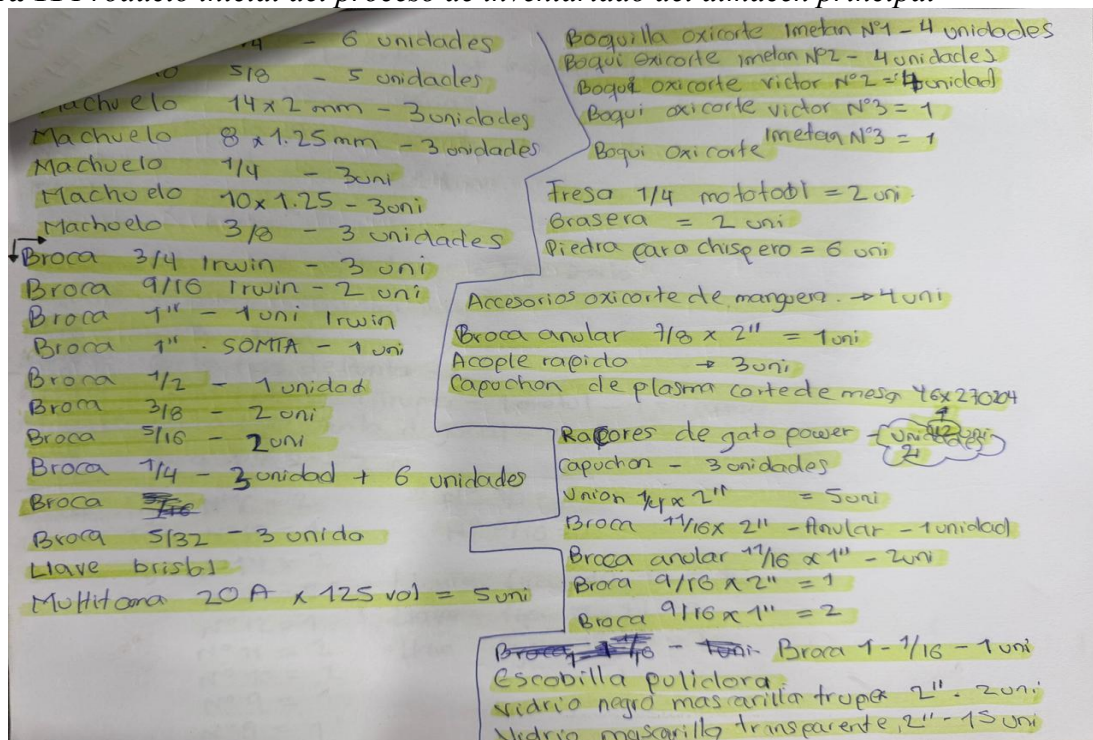 Producto inicial del proceso de inventariado del almacén principal
1/4 - 6 unidades
5/8 - 5 unidades
Machuelo 14x2 mm - 3 unidades
Machuelo 8x1.25 mm - 3 unidades
Machuelo 1/4 - 3 uni
Machuelo 10x1.25 - 3 uni
Machuelo 3/8 - 3 unidades
Broca 3/4 Irwin - 3 uni
Broca 9/16 Irwin - 2 uni
Broca 1" - 1 uni Irwin
Broca 1" - SOMTA - 1 uni
Broca 1/2 - 1 unidad
Broca 3/8 - 2 uni
Broca 5/16 - 2 uni
Broca 1/4 - 3 unidad + 6 unidades
Broca
Broca 5/32 - 3 unida
Llave
Multitoma 20 A x 125 vol = 5 uni
Boquilla oxicorte Imetan N°1 - 4 unidades
Boqui oxicorte imetan N°2 - 4 unidades
Boqui oxicorte victor N°2 = 4 unidad
Boqui oxicorte victor N°3 = 1
Boqui oxicorte Imetan N°3 = 1
Fresa 1/4 mototool = 2 uni.
Grasera = 2 uni
Piedra para chispero = 6 uni
Accesorios oxicorte de manguera. → 4 uni
Broca anular 7/8 x 2" = 1 uni
Acople rapido → 3 uni
Capuchon de plasma corte de mesa
Racores de gato power -
Capuchon - 3 unidades
Union 1/4 x 2" = 5 uni
Broca 11/16 x 2" - Anular - 1 unidad
Broca anular 11/16 x 1" - 2 uni
Broca 9/16 x 2" = 1
Broca 9/16 x 1" = 2
Broca 1 - 1/16 - 1 uni
Escobilla pulidora.
Vidrio negro mascarilla truper 2" - 2 uni
Vidrio mascarilla transparente, 2" - 15 uni